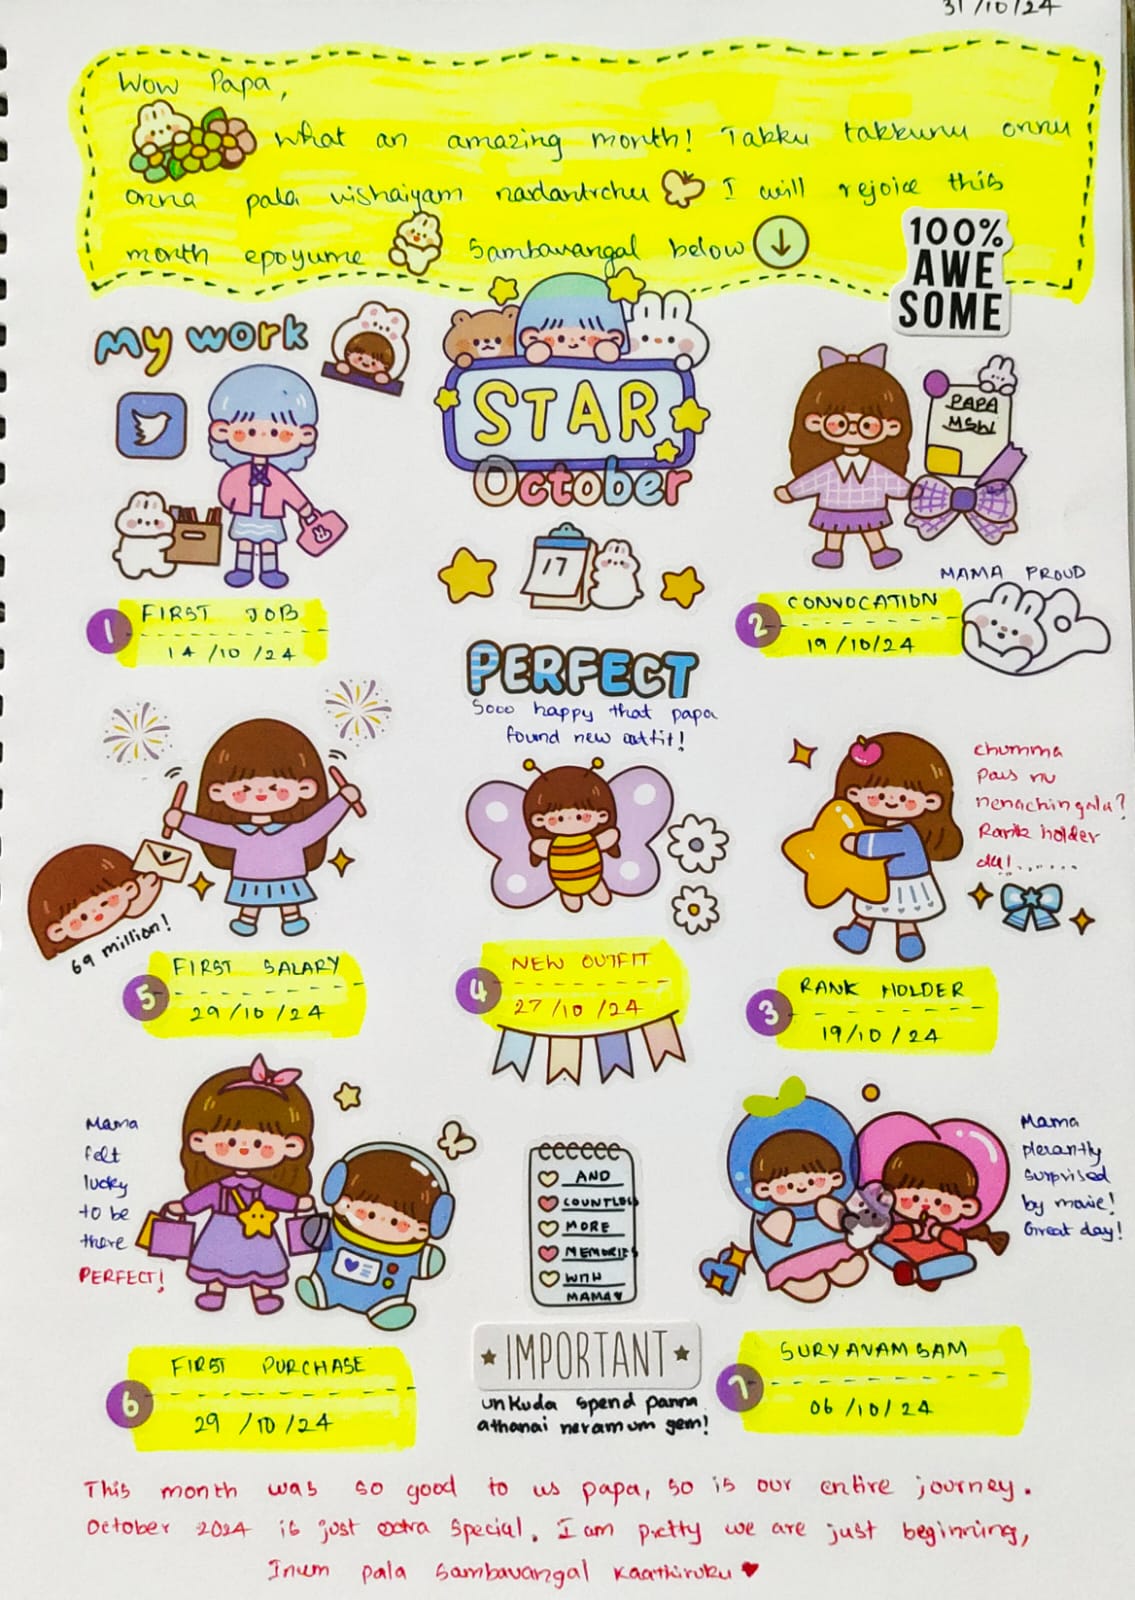 31/10/24
Wow Papa,
What an amazing month! Takku takkunu onnu
onna pala vishaiyam nadantrchu I will rejoice this
month epoyume Sambavangal below
100%
AWE
SOME
My work
STAR
October
PAPA
MSW
17
1 FIRST JOB
14/10/24
MAMA PROUD
2 CONVOCATION
19/10/24
PERFECT
Sooo happy that papa
found new outfit!
chumma
pass nu
nenachingala?
Rank holder
da!......
69 million!
5 FIRST SALARY
29/10/24
4 NEW OUTFIT
27/10/24
3 RANK HOLDER
19/10/24
Mama
felt
lucky
to be
there
PERFECT!
AND
COUNTLESS
MORE
MEMORIES
WITH
MAMA♥
Mama
plesantly
surprised
by movie!
Great day!
6 FIRST PURCHASE
29/10/24
IMPORTANT
unkuda spend panna
athanai neramum gem!
7 SURYAVAMSAM
06/10/24
This month was so good to us papa, so is our entire journey.
October 2024 is just extra special. I am pretty we are just beginning,
Inum pala sambavangal kaathiruku ♥